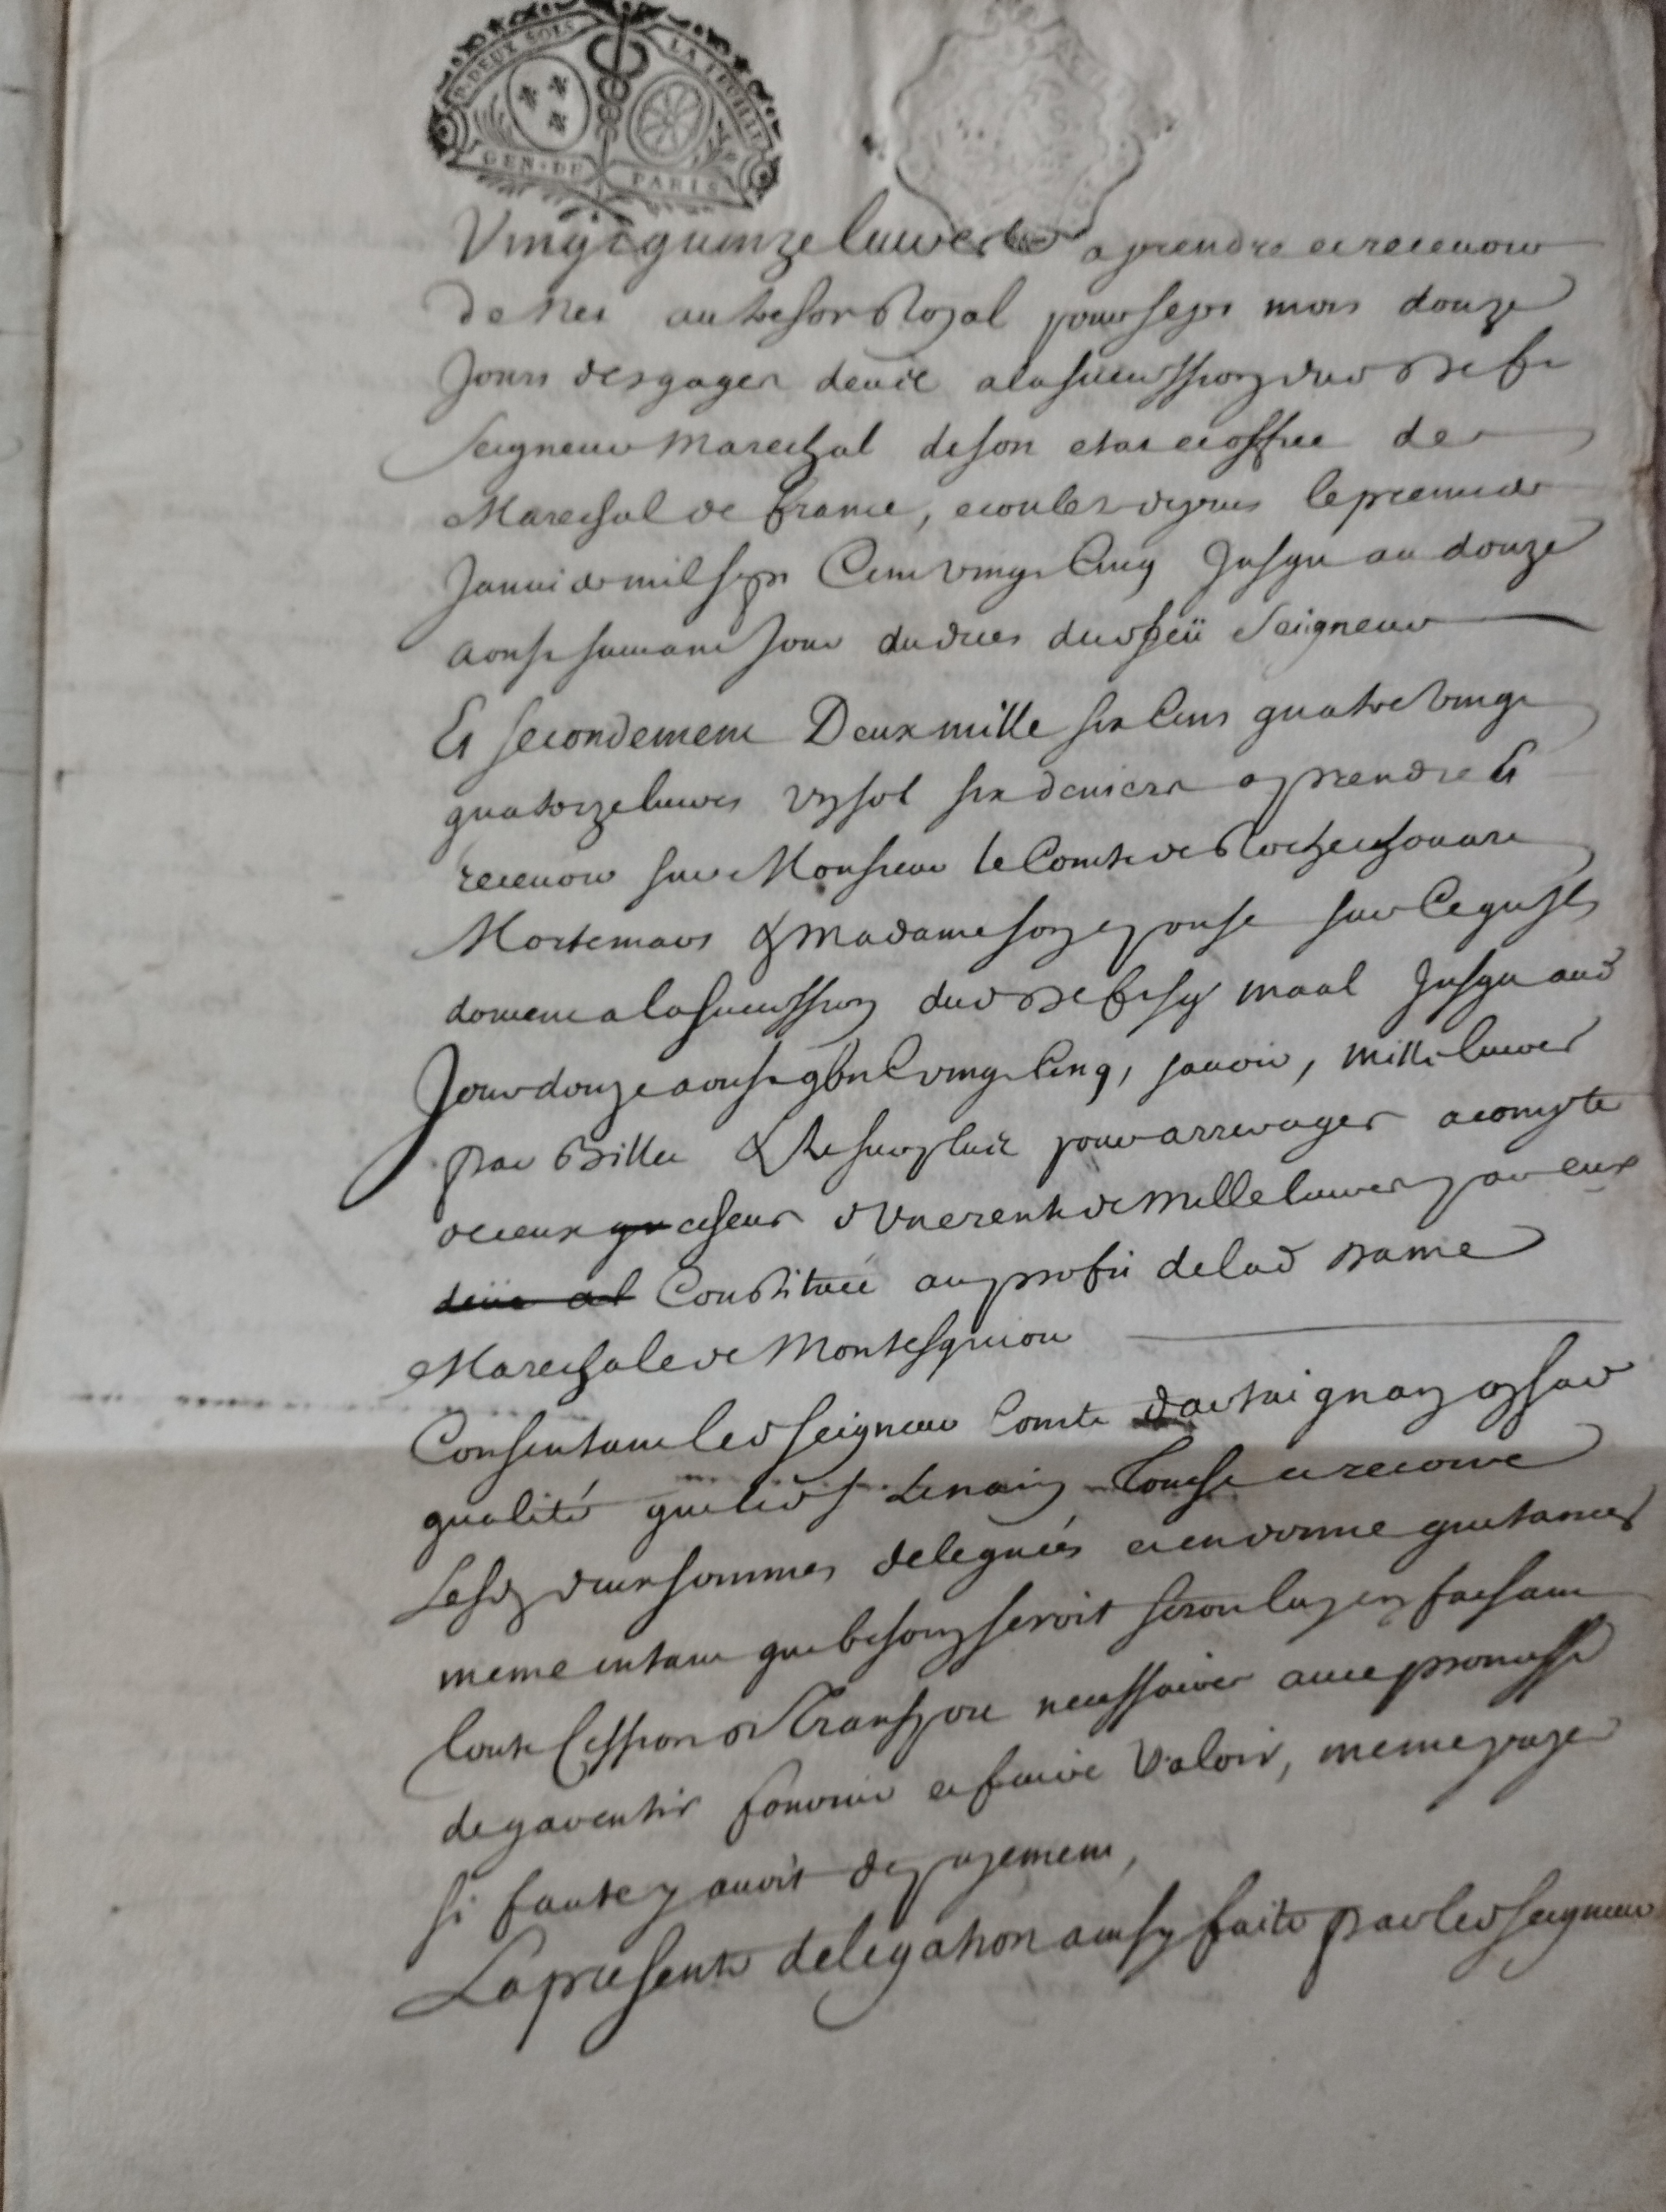 P. DEUX SOLS LA FEUILLE
GEN. DE PARIS
Vingt quinze livres a prendre et recevoir
de Net au tresor Royal pour sept mois douze
Jours des gages deüe a la succession dud deft
Seigneur Marechal de son etat et office de
Marechal de france, ecoulez depuis le premier
Janvier mil sept Cent vingt Cinq Jusqu au douze
aoust suivant Jour du deces dud feü Seigneur
Et secondement Deux mille six Cens quatre vingt
quatorze livres un sol six deniers a prendre Et
recevoir sur Monsieur le Comte de Rochechouart
Mortemart & Madame son epouse sur Ce qu'ils
doivent a la succession dud deft sgr maal Jusqu aud
Jour douze aoust gbii C vingt Cinq, savoir, mille livres
par Billet & le surplus pour arrerages a compte
de ceux qu escheus d Une rente de Mille livres par eux
deüe al Constituée au profit de lad Dame
Marechale de Montesquiou
Consentant led Seigneur Comte dartaignan esd
qualité que led S Lenain Touche et recoive
Lesd deux sommes deleguées et en donne quitances
meme entant que besoin seroit luy en faisant
toute Cession & Transport necessaires avec promesse
de garentir fournir et faire Valoir, meme payer
si faute y avoit de payement,
La presente delegation ainsy faite par led seigneur